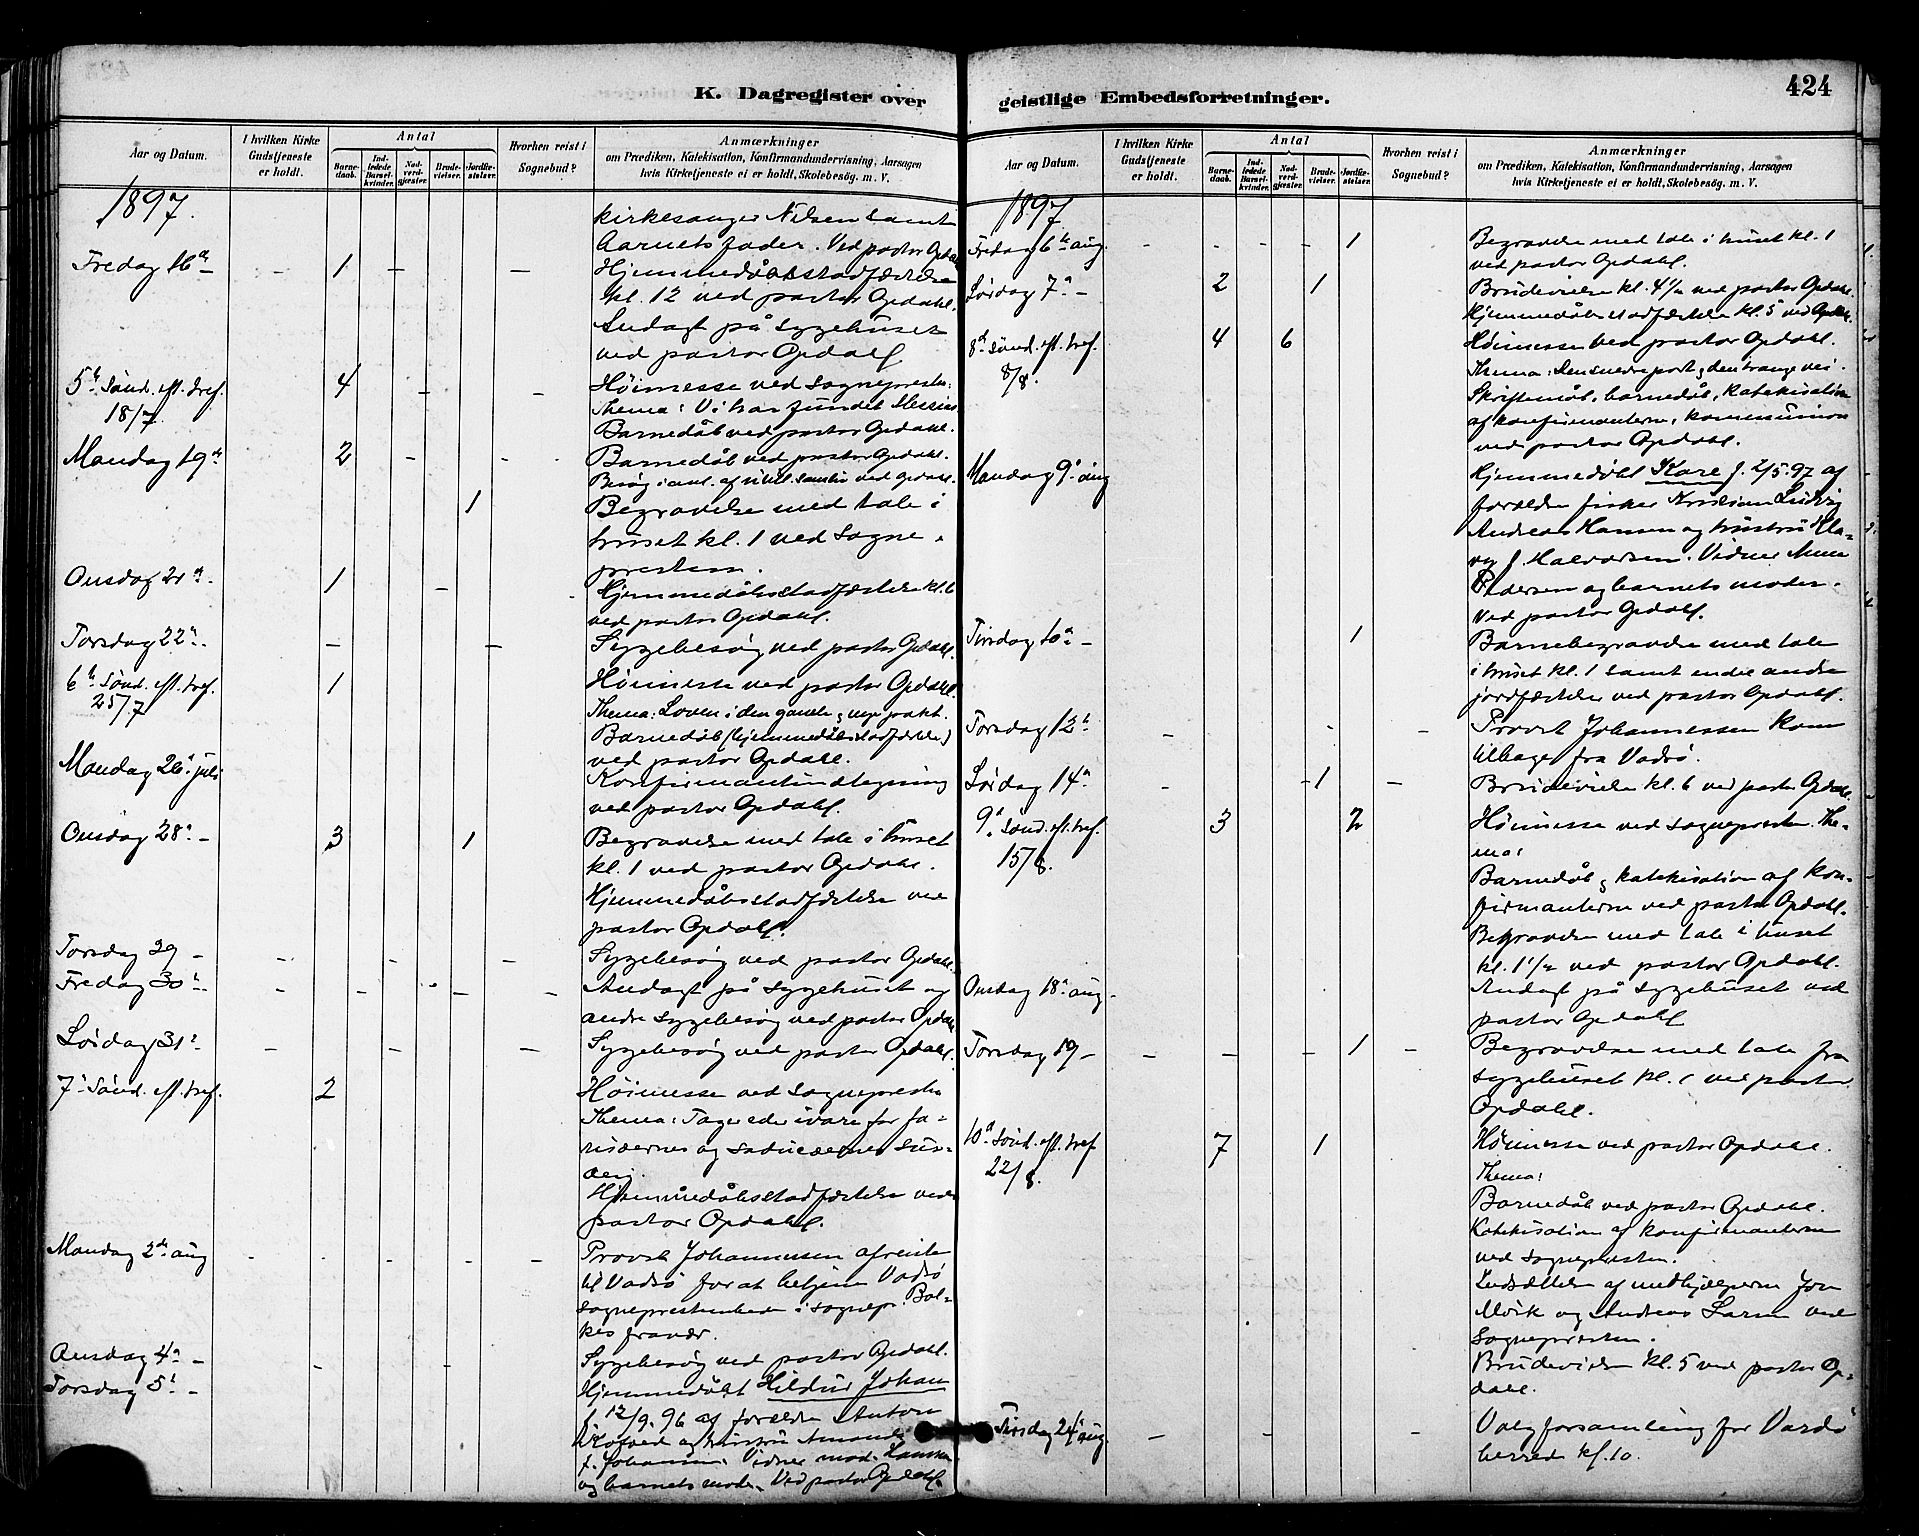 K. Dagregister over
Aar og Datum.
I hvilken Kirke Gudstjeneste er holdt.
Antal
Barnedaab.
Indledede Barselkvinder.
Nadverdgjester.
Brudevielser.
Jordfæstelser.
Hvorhen reist i Sognebud?
Anmærkninger
om Prædiken, Katekisation, Konfirmandundervisning, Aarsagen
hvis Kirketjeneste ei er holdt, Skolebesøg. m. V.
1897.
kirkesanger Nilsen samt
barnets fader. Ved pastor Opdahl
Fredag 16de – 1 Hjemmedåbsstadfæstelse
kl. 12 ved pastor Opdahl.
Andagt på sygehuset
ved pastor Opdahl
5te Sønd. eft. tref. 4 Høimesse ved sognepresten.
18/7. Thema: Vi har fundet Messias
Barnedåb ved pastor Opdahl.
Mandag 19de 2 Barnedåb ved pastor Opdahl.
Besøg i anl. af vildt samliv ved Opdahl.
1 Begravelse med tale i
huset kl. 1 ved sogne-
presten.
Onsdag 21de – 1 Hjemmedåbsstadfæstelse kl. 6
ved pastor Opdahl.
Torsdag 22de – Sygebesøg ved pastor Opdahl.
6te Sønd. eft. tref. 1 Høimesse ved pastor Opdahl.
25/7 Thema: Loven i den gamle og nye pakt.
Barnedåb (hjemmedåbsstadfæstelse)
ved pastor Opdahl.
Mandag 26de juli Konfirmantindtegning
ved pastor Opdahl.
Onsdag 28de – 3 1 Begravelse med tale i huset
kl. 1 ved pastor Opdahl.
Hjemmedåbsstadfæstelse ved
pastor Opdahl.
Torsdag 29 – Sygebesøg ved pastor Opdahl.
Fredag 30te Andagt på sygehuset og
andre sygebesøg ved pastor Opdahl
Lørdag 31te Sygebesøg ved pastor Opdahl.
7de Sønd. eft. tref. 2 Høimesse ved sognepresten
Thema: Tager eder ivare for fa-
risæernes og saducæernes sur-
deig.
Hjemmedåbsstadfæstelse ved
pastor Opdahl.
Mandag 2den aug Provst Johannessen afreiste
til Vadsø for at betjene Vadsø
sogneprestembede i sognepr. Bal-
kes fravær.
Onsdag 4de – Sygebesøg ved pastor Opdahl.
Torsdag 5te – Hjemmedøbt Hildur Johan
f. 12/9. 96 af forældre Anton
og hustru Amanda
f. Johansen. Vidner mad. Hansen
og barnets moder. Ved pastor Opdahl.
geistlige Embedsforretninger.
424
Aar og Datum.
I hvilken Kirke Gudstjeneste er holdt.
Antal
Barnedaab.
Indledede Barselkvinder.
Nadverdgjester.
Brudevielser.
Jordfæstelser.
Hvorhen reist i Sognebud?
Anmærkninger
om Prædiken, Katekisation, Konfirmandundervisning, Aarsagen
hvis Kirketjeneste ei er holdt, Skolebesøg. m. V.
1897
Fredag 6te aug. 1 Begravelse med tale i huset kl. 1
ved pastor Opdahl.
Lørdag 7de – 2 1 Brudevielse kl. 4 1/2 ved pastor Opdahl.
Hjemmedåbsstadfæstelse kl. 5 ved Opdahl.
8de Sønd. eft. tref. 4 6 Høimesse ved pastor Opdahl.
8/8. Thema: Den snevre port og den trange vei.
Skriftemål, barnedåb, katekisation
af konfirmanterne, kommunion
ved pastor Opdahl.
Mandag 9de aug Hjemmedøbt Kare f. 2/5. 97 af
forældre fisker Kristian Ludvig
Andreas Hansen og hustru Ola-
va f. Halvorsen. Vidner Anna
Pedersen og barnets moder.
Ved pastor Opdahl.
Tirsdag 10de – 1 Barnebegravelse med tale
i huset kl. 1 samt endre andre
jordfæstelser ved pastor Opdahl.
Torsdag 12te Provst Johannessen kom
tilbage fra Vadsø.
Lørdag 14de 1 Brudevielse kl. 6 ved pastor Opdahl.
9de Sønd. eft. tref. 3 2 Høimesse ved sognepresten. The-
15/8. ma:
Barnedåb og katekisation af kon-
firmanterne ved pastor Opdahl.
Begravelse med tale i huset
kl. 1 1/2 ved pastor Opdahl.
Onsdag 18de aug. Andagt på sygehuset ved
pastor Opdahl
Torsdag 19 – 1 Begravelse med tale fra
sygehuset kl. 1 ved pastor
Opdahl.
10de Sønd. eft. tref 7 1 Høimesse ved pastor Opdahl.
22/8. Thema:
Barnedåb ved pastor Opdahl.
Katekisation af konfirmanterne
ved sognepresten.
Indsættelse af medhjælperne Jon
Mörk og Andreas Larsen ved
Sognepresten.
Brudevielse kl. 5 ved pastor Op-
dahl.
Tirsdag 24 aug. Valgforsamling for Vardø
herred kl. 10.